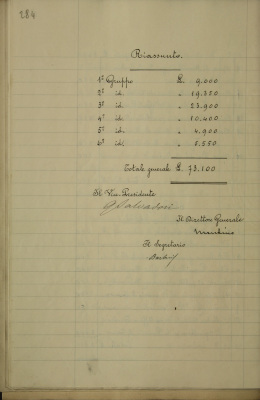 284
Riassunto.
1º Gruppo £. 9.000
2º id. " 19.350
3º id. " 23.900
4º id. " 10.400
5º id. " 4.900
6º id. " 5.550
Totale generale £. 73.100
Il Vice Presidente
G Salvadori
Il Direttore Generale
Il Segretario